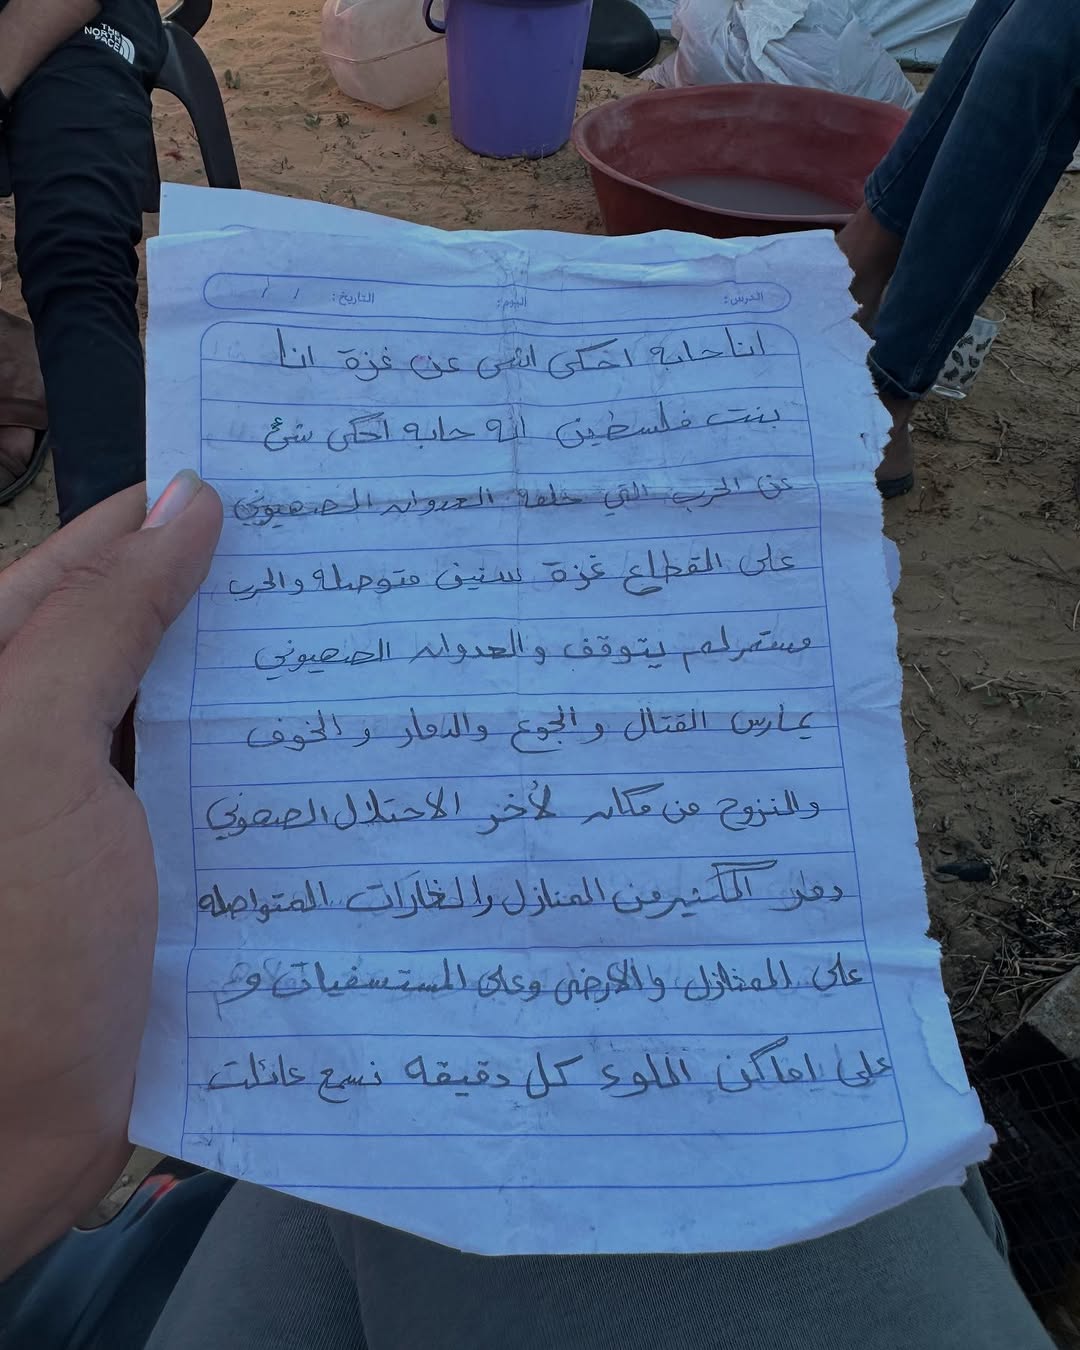 THE NORTH FACE
الدرس: اليوم: التاريخ: / /
انا حابه احكي اشي عن غزة انا
بنت فلسطين انه حابه احكي شئ
عن الحرب التي خلفه العدوان الصهيوني
على القطاع غزة سنين متوصله والحرب
مستمر لم يتوقف والعدوان الصهيوني
يمارس القتال والجوع والدمار و الخوف
والنزوح من مكان لأخر الاحتلال الصهوني
دمار الكثير من المنازل والغارات المتواصله
على المنازل والارض وعلى المستسفيات و
على اماكن اللوء كل دقيقه نسمع عائلات